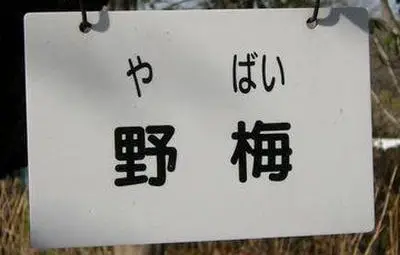 や ばい
野梅